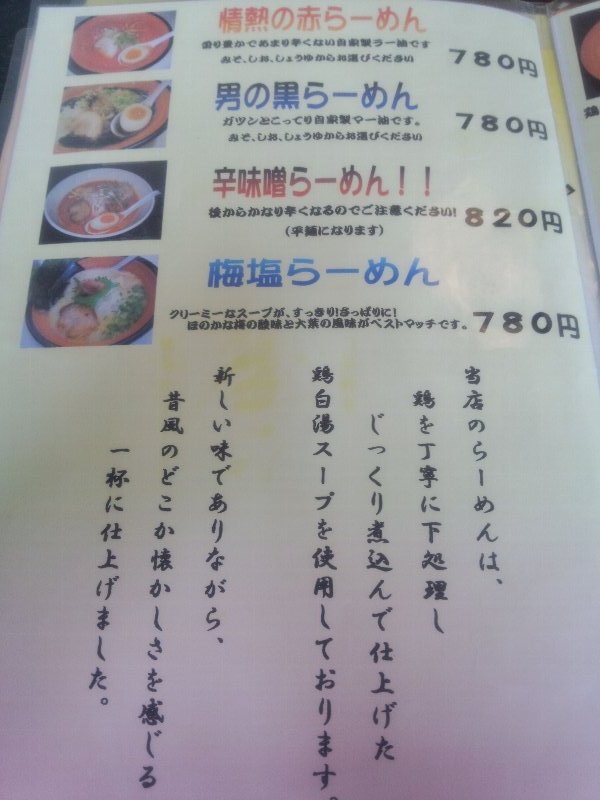 情熱の赤らーめん
香り豊かであまり辛くない自家製ラー油です
みそ、しお、しょうゆからお選びください
780円
男の黒らーめん
ガツンとこってり自家製マー油です。
みそ、しお、しょうゆからお選びください
780円
辛味噌らーめん！！
後からかなり辛くなるのでご注意ください！
(平麺になります)
820円
梅塩らーめん
クリーミーなスープが、すっきり！さっぱりに！
ほのかな梅の酸味と大葉の風味がベストマッチです。
780円
当店のらーめんは、
鶏を丁寧に下処理し
じっくり煮込んで仕上げた
鶏白湯スープを使用しております。
新しい味でありながら、
昔風のどこか懐かしさを感じる
一杯に仕上げました。
鶏